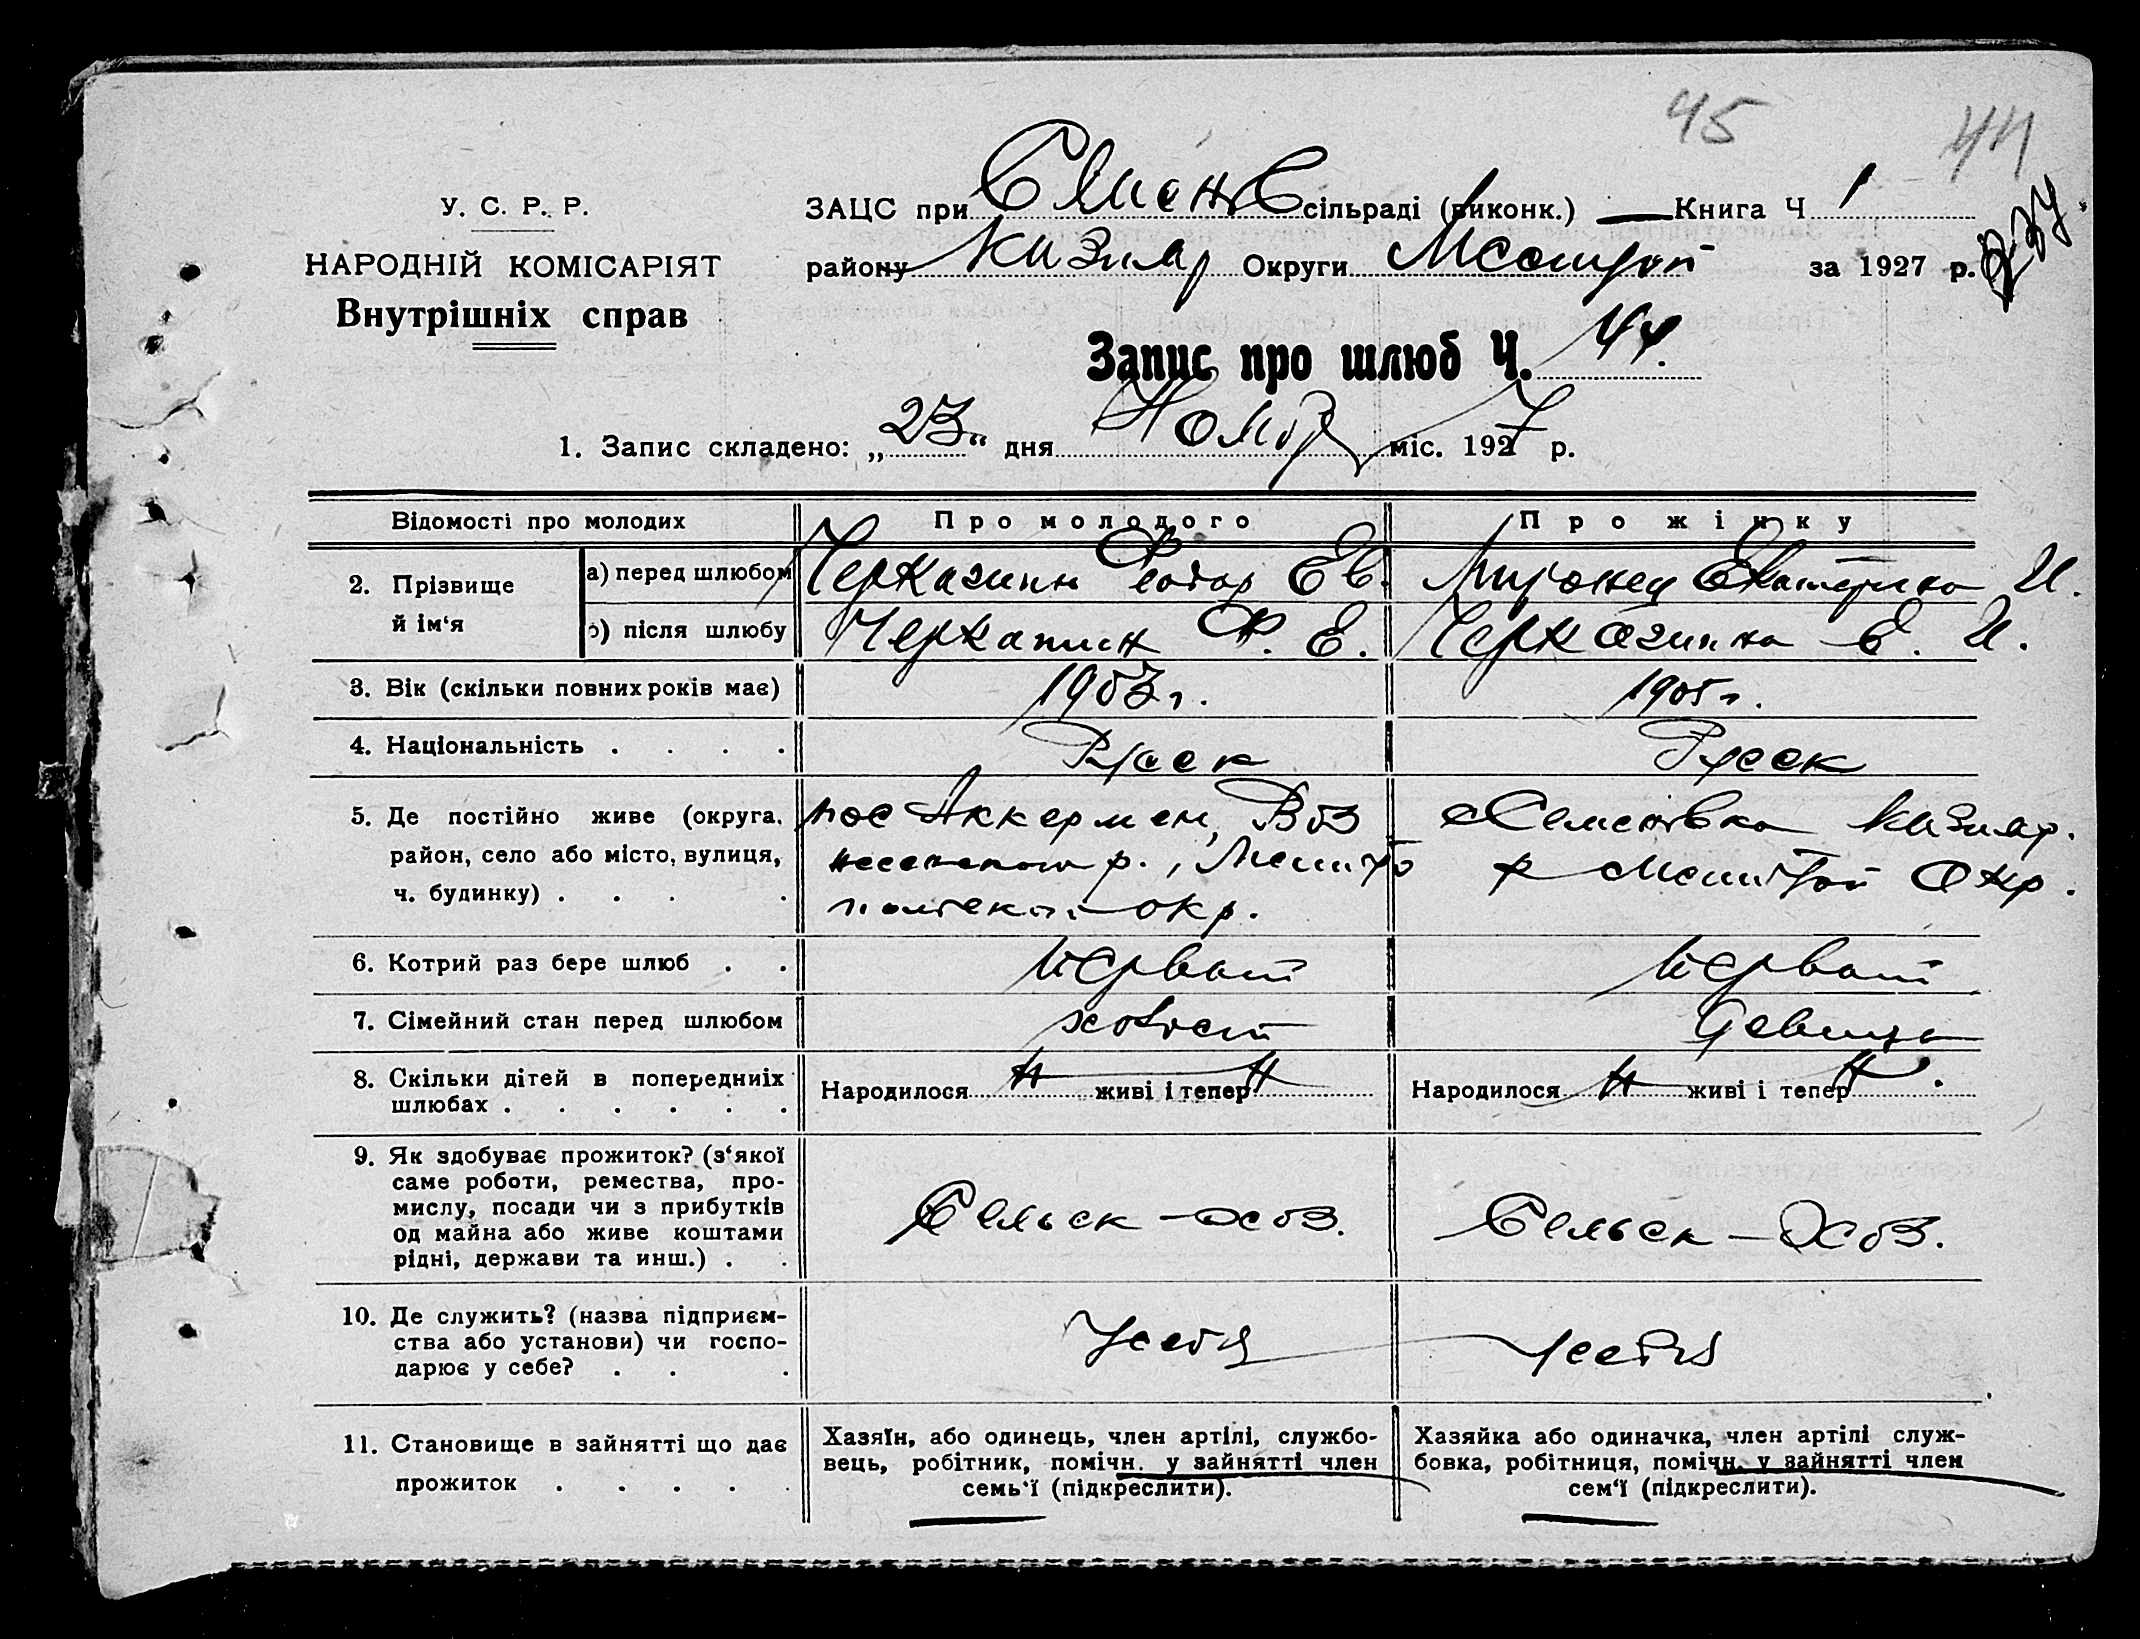 45 44
237
У. С. Р. Р.
НАРОДНІЙ КОМІСАРІЯТ
Внутрішніх справ
ЗАЦС при Семен С сільраді (виконк.) — Книга Ч 1
району Кизияр Округи Мелитоп за 1927 р.
Запис про шлюб Ч. 44.
1. Запис складено: „23“ дня Ноябр міс. 1927 р.
Відомості про молодих Про молодого Про жінку
2. Прізвище й ім‘я
а) перед шлюбом Черказин Феодор Ев. Миронец Екатерина И.
б) після шлюбу Черказин Ф. Е. Черказина Е. И.
3. Вік (скільки повних років має) 1903г. 1905г.
4. Національність . . . . Русск Русск
5. Де постійно живе (округа, район, село або місто, вулиця, ч. будинку) . . . .
пос Аккермен, Воз
несенского р., Мелито
польской окр.
с Семеновка Кизияр.
р Мелитоп Окр.
6. Котрий раз бере шлюб . . Первый Первый
7. Сімейний стан перед шлюбом холост девица
8. Скільки дітей в попередниіх шлюбах . . . . . .
Народилося Н живі і тепер Н Народилося Н живі і тепер Н.
9. Як здобуває прожиток? (з‘якої
саме роботи, ремества, про-
мислу, посади чи з прибутків
од майна або живе коштами
рідні, держави та инш.) . .
Сельск-хоз. Сельск-Хоз.
10. Де служить? (назва підприєм-
ства або установи) чи госпо-
дарює у себе? . . .
У себя У себя
11. Становище в зайнятті що дає
прожиток . . . . .
Хазяїн, або одинець, член артілі, службо-
вець, робітник, помічн. у зайнятті член
семь‘ї (підкреслити).
Хазяйка або одиначка, член артілі служ-
бовка, робітниця, помічн. у зайнятті член
сем‘ї (підкреслити).